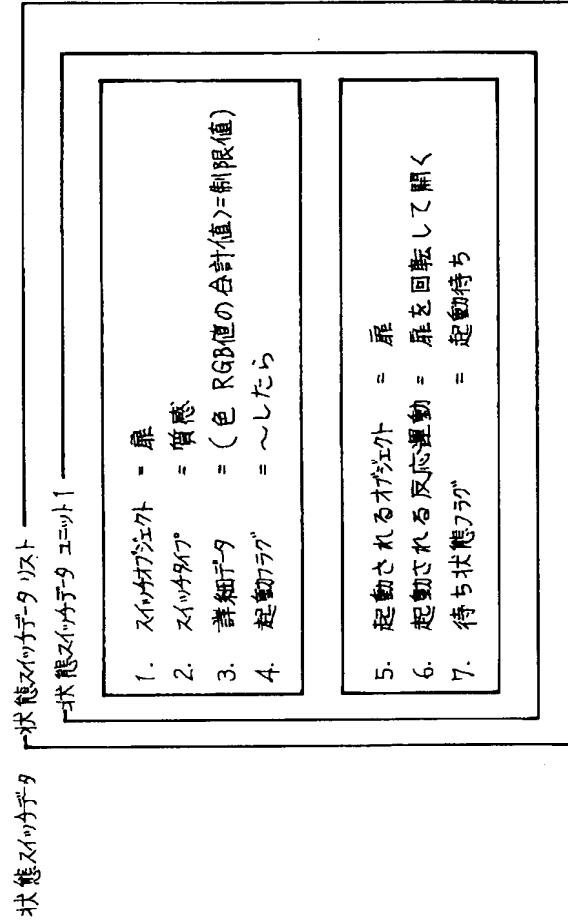 状態スイッチデータ
状態スイッチデータ リスト
状態スイッチデータ ユニット1
1. スイッチオブジェクト = 扉
2. スイッチタイプ = 質感
3. 詳細データ = (色 RGB値の合計値)=制限値)
4. 起動フラグ = ～したら
5. 起動されるオブジェクト = 扉
6. 起動される反応運動 = 扉を回転して開く
7. 待ち状態フラグ = 起動待ち